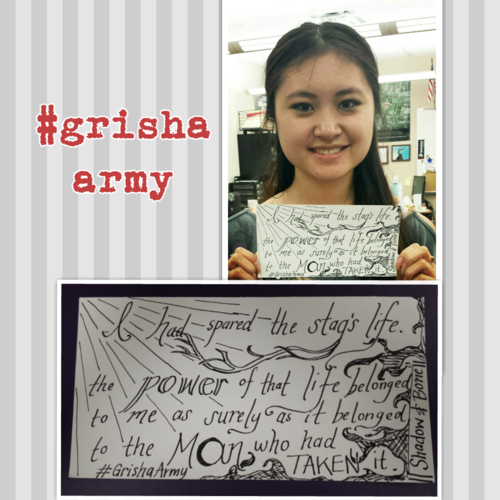 #grisha
army
I had spared the stag's life.
the power of that life belonged
to me as surely as it belonged
to the Man who had
TAKEN it.
#GrishaArmy
I had spared the stag's life.
the power of that life belonged
to me as surely as it belonged
to the Man who had
TAKEN it.
#GrishaArmy
"Shadow & Bone"